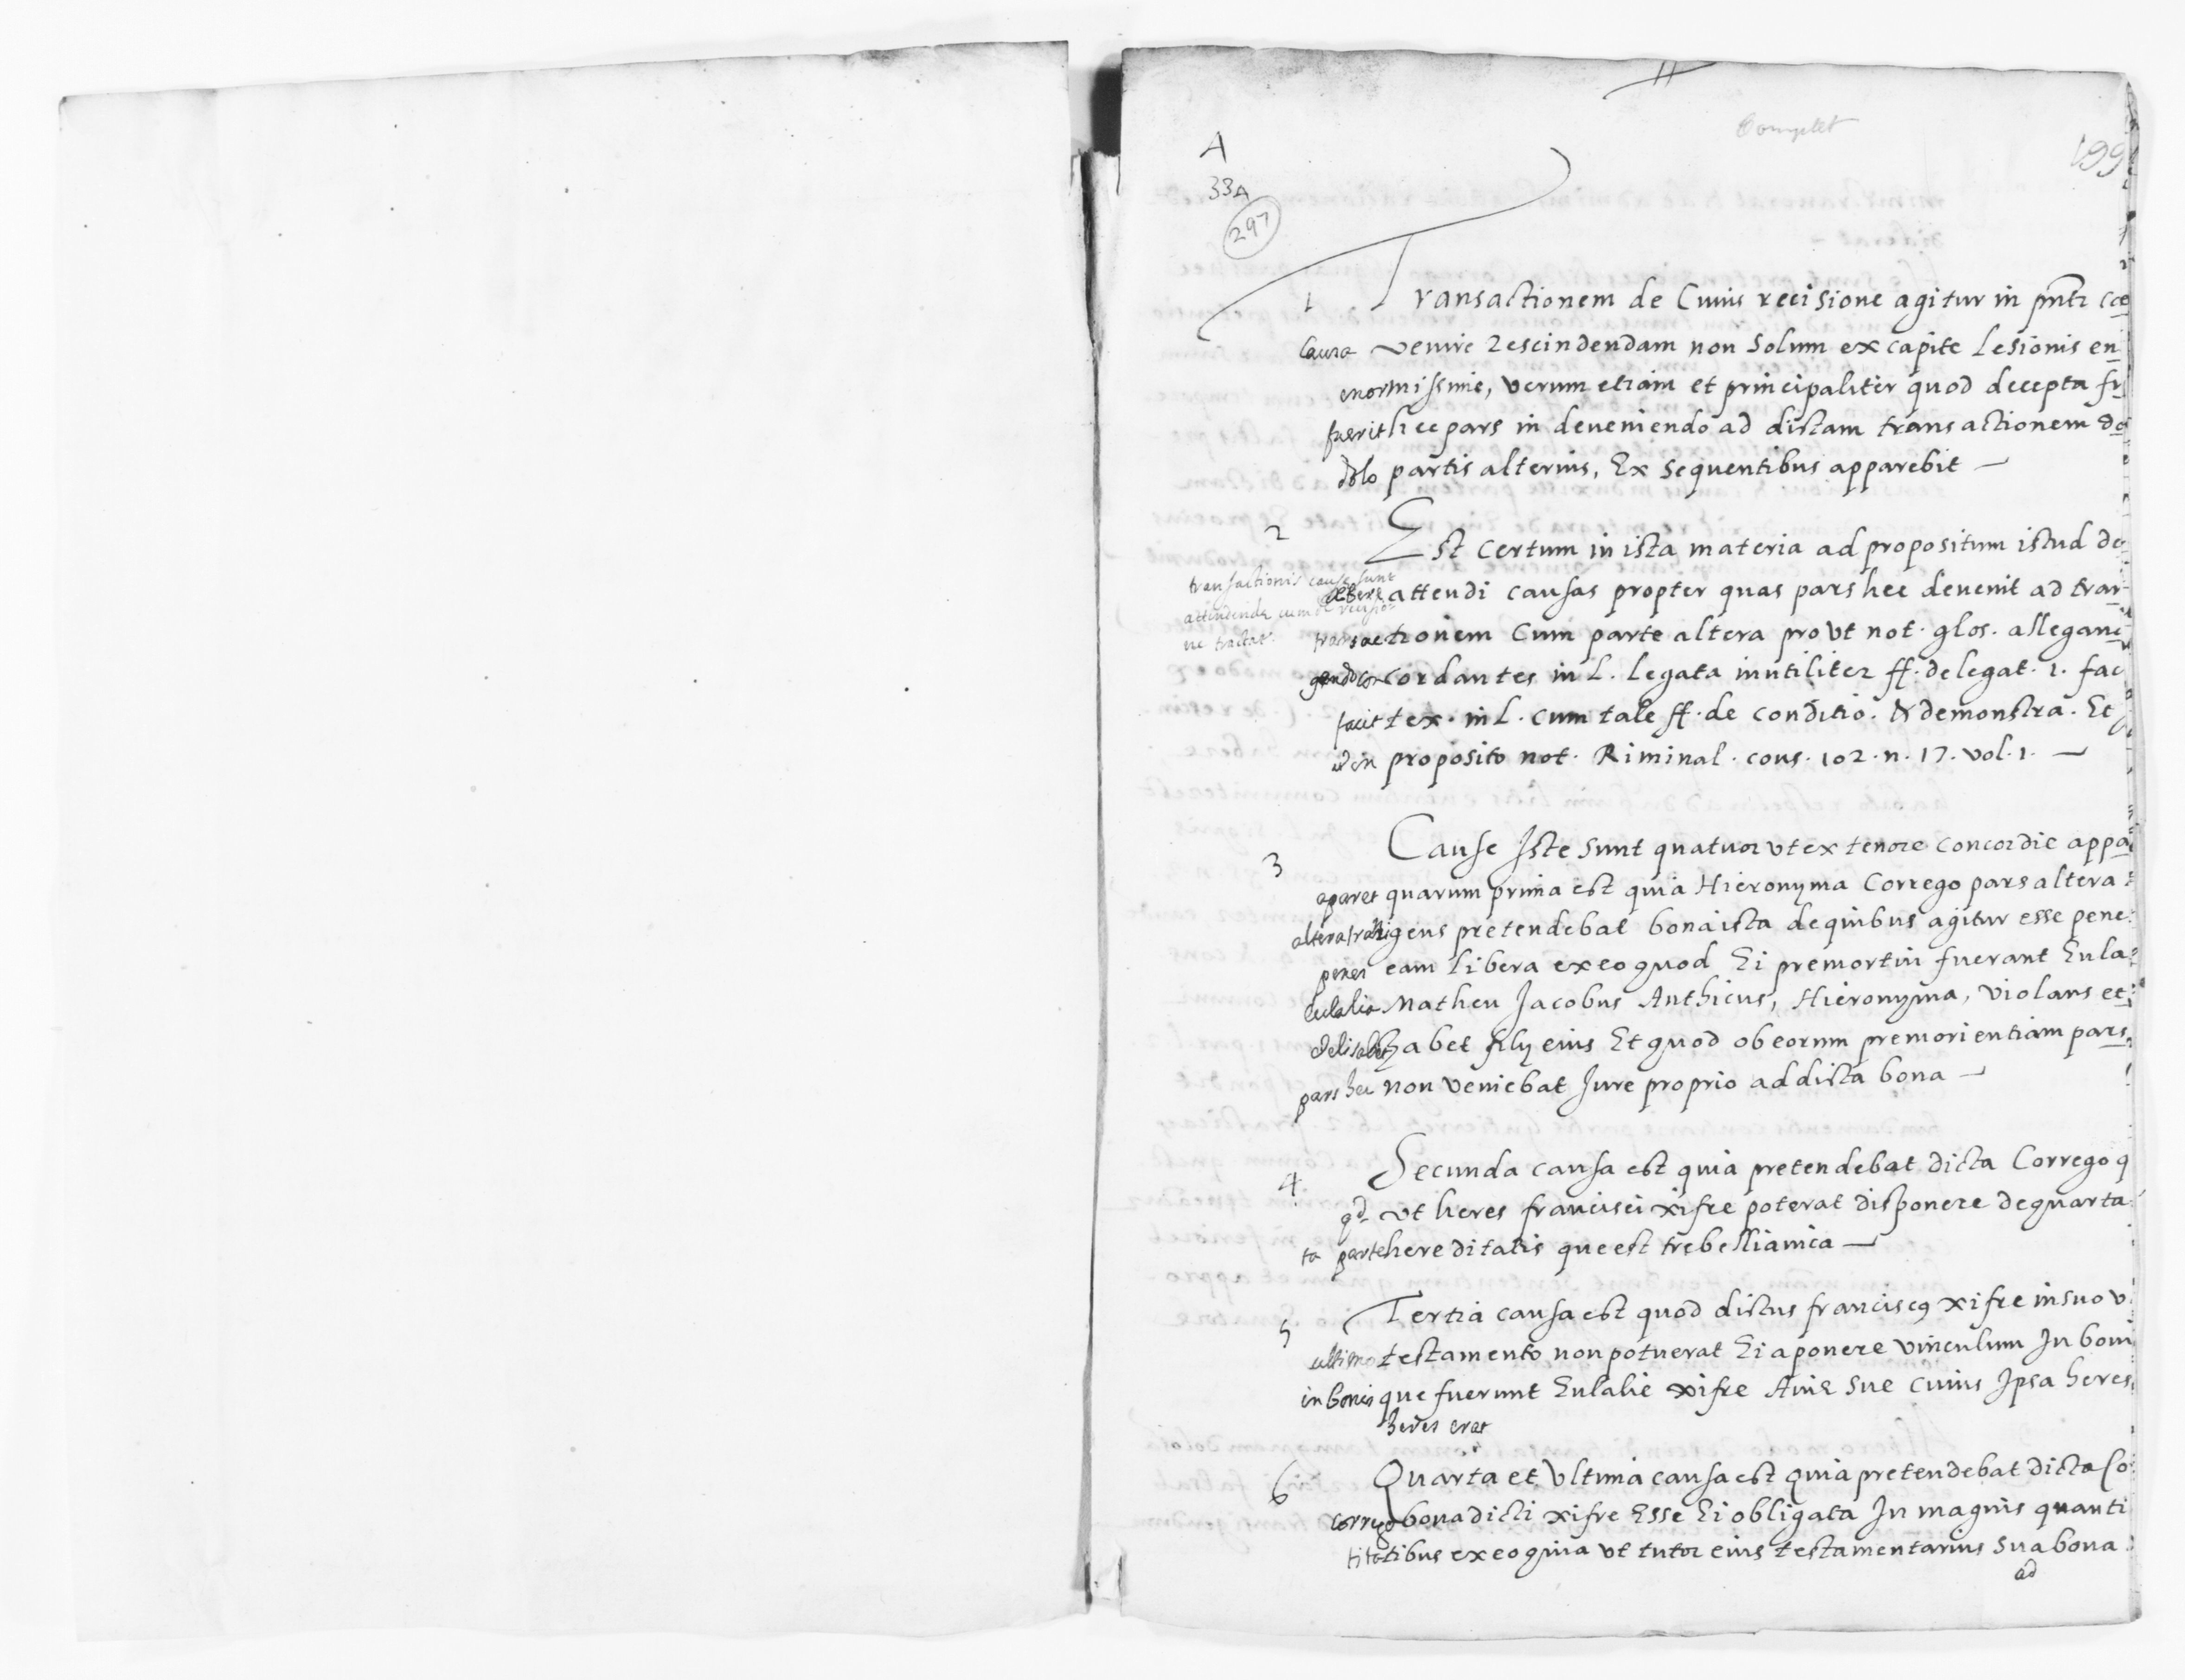 Complet
A
199
33A
297
1 Transactionem de Cuius recisione agitur in pnti cā
Causa venire Rescindendam non solum ex capite Lesionis en
enormissime, verum etiam et principaliter quod decepta fu
fuerit hec pars in deveniendo ad dictam transactionem do
dolo partis alterius, Ex sequentibus apparebit —
2 Est certum in ista materia ad propositum istud de
transactionis causę sunt
attendendę cum de rescisio
ne tractat.
debere attendi causas propter quas pars hec devenit ad tran
transactionem Cum parte altera pro ut not. glos. allegan
gando concordantes in L. Legata inutiliter ff. de legat. 1. fac
facit tex. in L. cum tale ff. de conditio. & demonstra. Et
ad in proposito not. Riminal. cons. 102. n. 17. vol. 1. —
3 Cause Iste sunt quatuor ut ex tenore concordie appa
aparet quarum prima est quia Hieronyma Corrego pars altera
altera transigens pretendebat bona ista de quibus agitur esse pene
penes eam Libera ex eo quod Ei premortui fuerant Eula
Eulalia Matheu Jacobus Anthicus, Hieronyma, Violans et
et elisabet zabet filij eius Et quod ob eorum premorientiam pars
pars hec non veniebat Jure proprio ad dicta bona —
4 Secunda causa est quia pretendebat dicta Corrego q
qd. ut heres francisci xifre poterat disponere de quarta
ta parte hereditatis que est trebellianica —
5 Tertia causa est quod dictus franciscus xifre in suo v
ultimo testamento non potuerat Ei aponere vinculum In boni
in bonis que fuerunt Eulalie xifre Auię sue cuius Ipsa heres
heres erat
6 Quarta et Ultima causa est quia pretendebat dicta Co
corrego bona dicti xifre Esse Ei obligata In magnis quanti
titatibus ex eo quia ut tutor eius testamentarius sua bona
ad